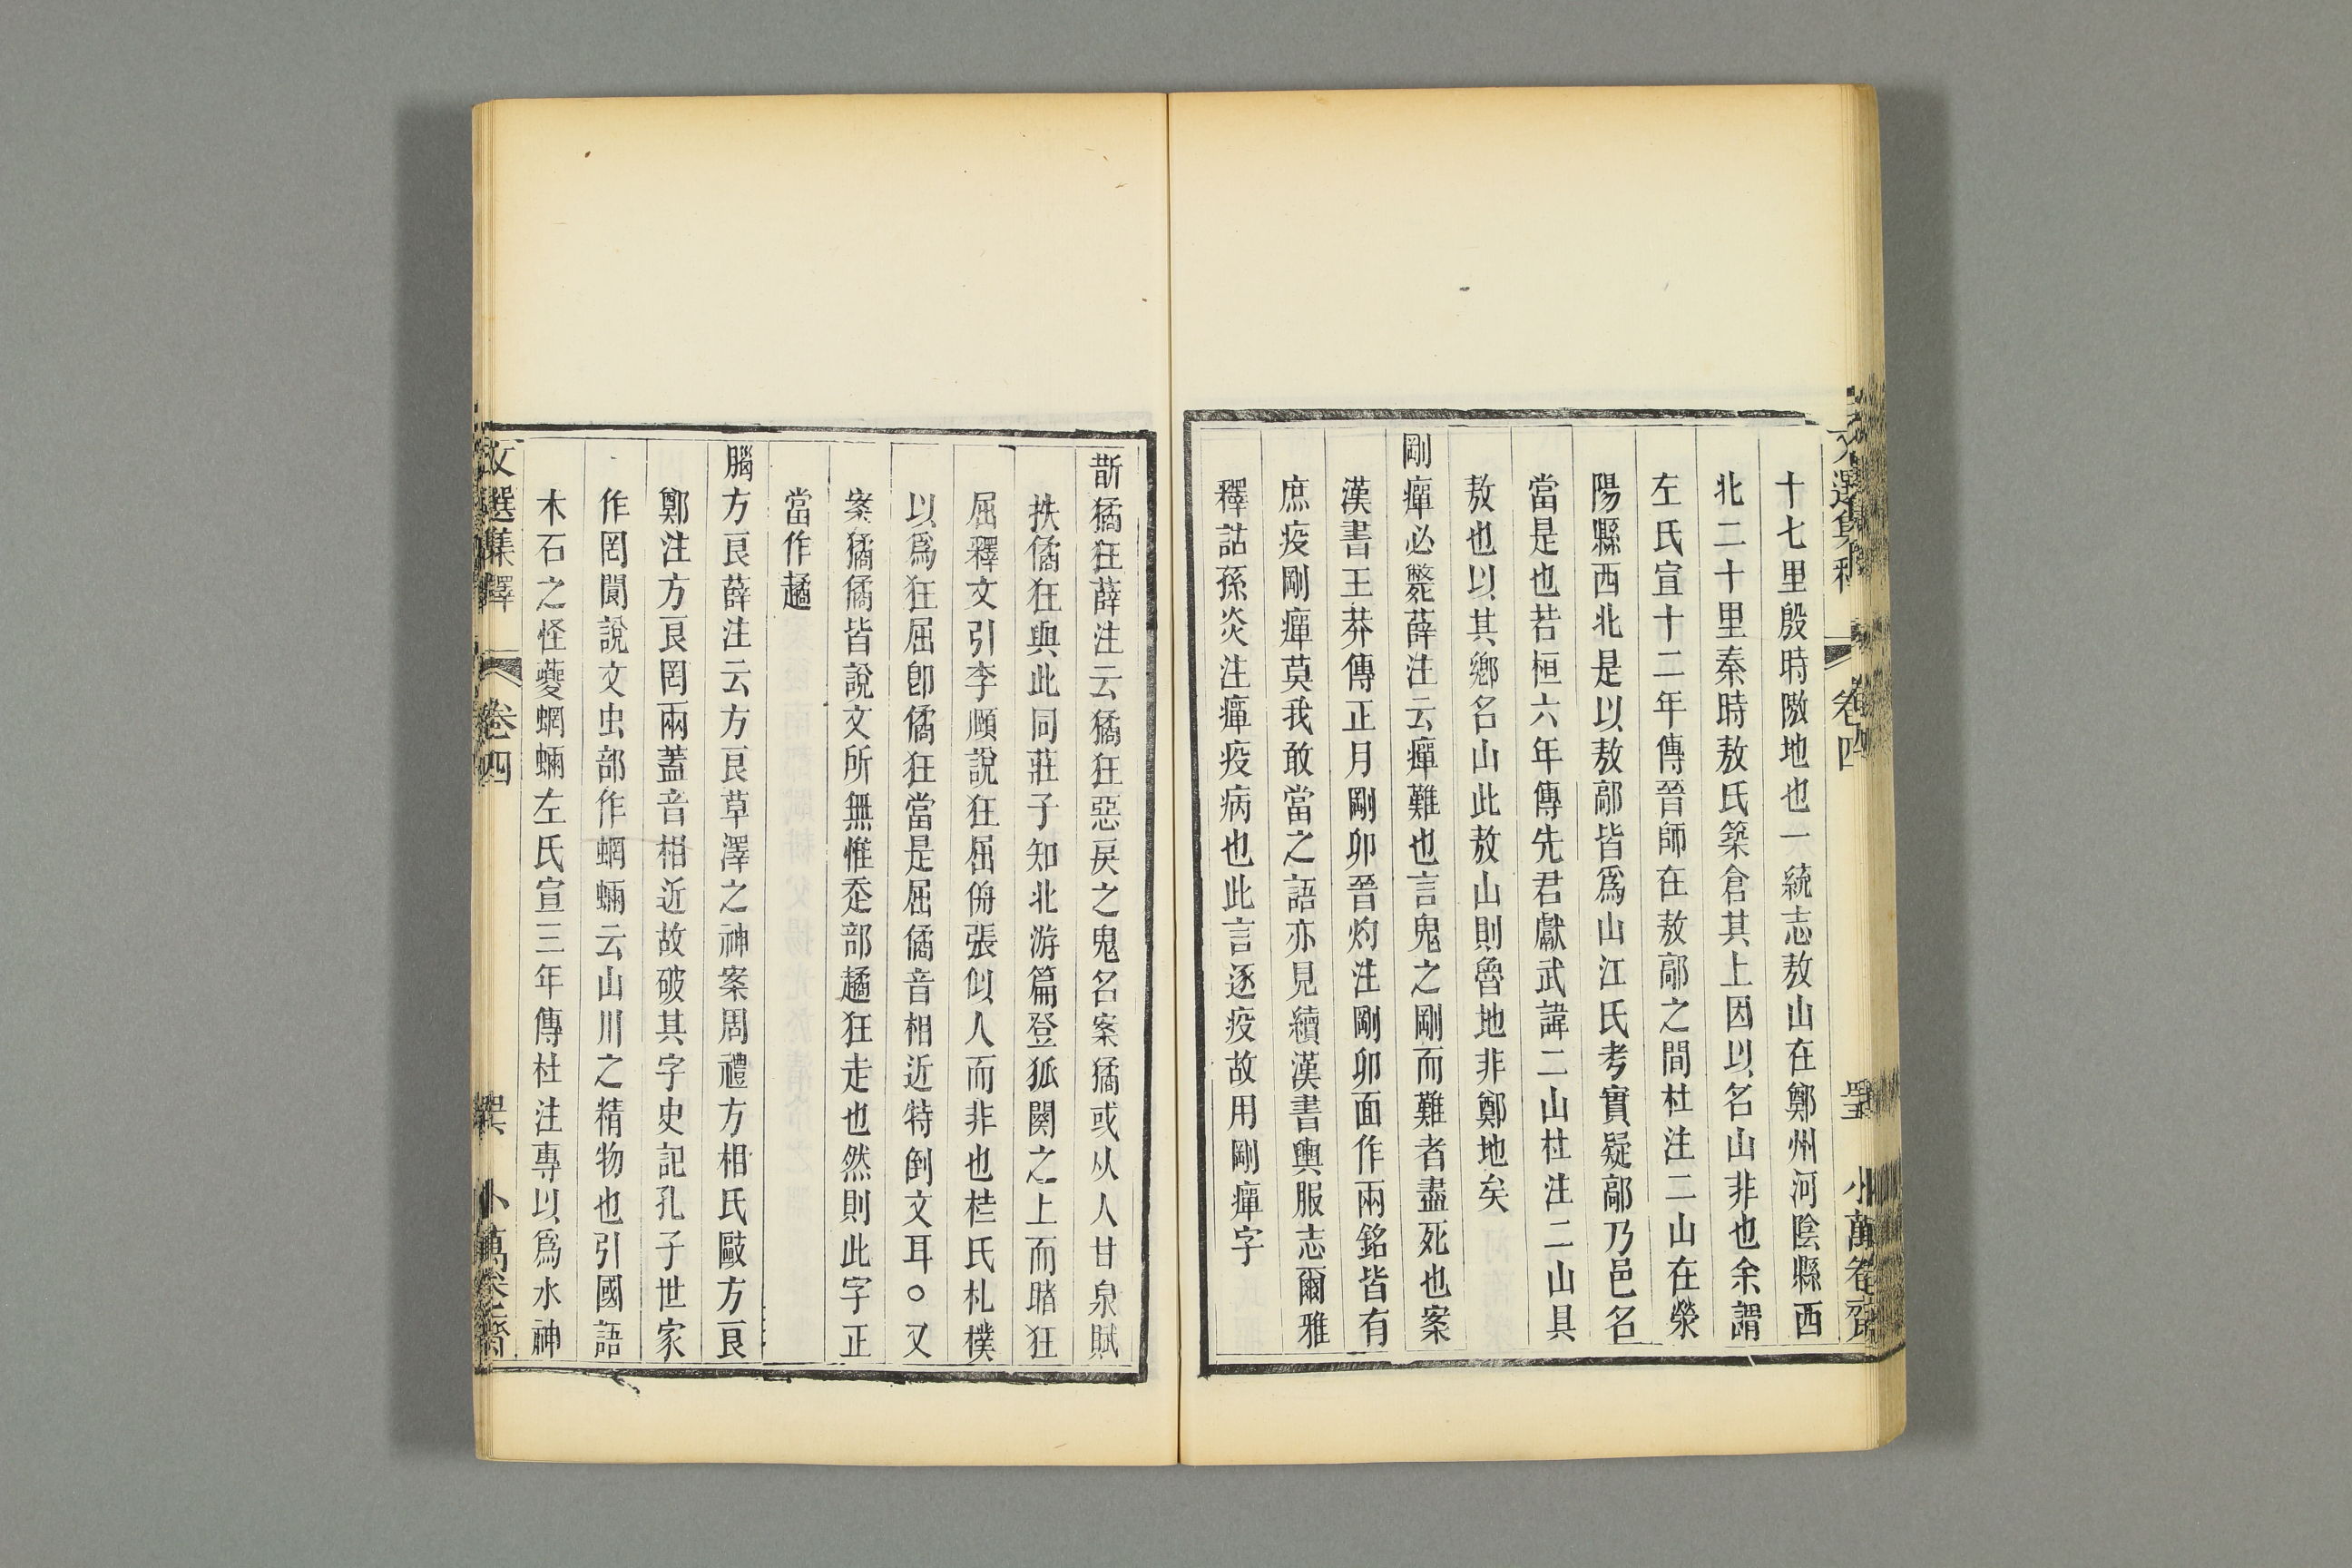 十七里殷時隞地也一統志敖山在鄭州河陰縣西
北二十里秦時敖氏築倉其上因以名山非也余謂
左氏宣十二年傳晉師在敖鄗之間杜注二山在滎
陽縣西北是以敖鄗皆爲山江氏考實疑鄗乃邑名
當是也若桓六年傳先君獻武諱二山杜注二山具
敖也以其鄉名山此敖山則魯地非鄭地矣
剛癉必斃薛注云癉難也言鬼之剛而難者盡死也案
漢書王莽傳正月剛卯晉灼注剛卯面作兩銘皆有
庶疫剛癉莫我敢當之語亦見續漢書輿服志爾雅
釋詁孫炎注癉疫病也此言逐疫故用剛癉字
斮獝狂薛注云獝狂惡戾之鬼名案獝或从人甘泉賦
抶僪狂與此同莊子知北游篇登狐闋之上而睹狂
屈釋文引李頤說狂屈侜張似人而非也桂氏札樸
以爲狂屈卽僪狂當是屈僪音相近特倒文耳○又
案獝僪皆說文所無惟走部趫狂走也然則此字正
當作趫
腦方良薛注云方良草澤之神案周禮方相氏敺方良
鄭注方良罔兩蓋音相近故破其字史記孔子世家
作罔閬說文虫部作蝄蜽云山川之精物也引國語
木石之怪夔蝄蜽左氏宣三年傳杜注專以爲水神
文選集釋 卷四 小萬卷齋